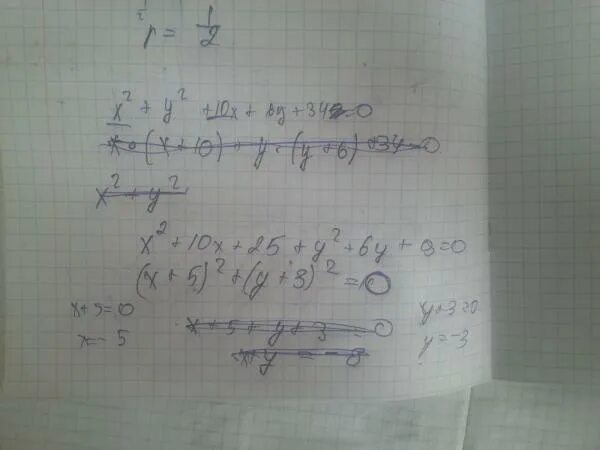 r = 1/2
x² + y² + 10x + 6y + 34 = 0
x · (x + 10) + y · (y + 6) + 34 = 0
x² + y²
x² + 10x + 25 + y² + 6y + 9 = 0
(x + 5)² + (y + 3)² = 0
x + 5 = 0 x + 5 + y + 3 = 0 y + 3 = 0
x = - 5 x + y = - 8 y = - 3